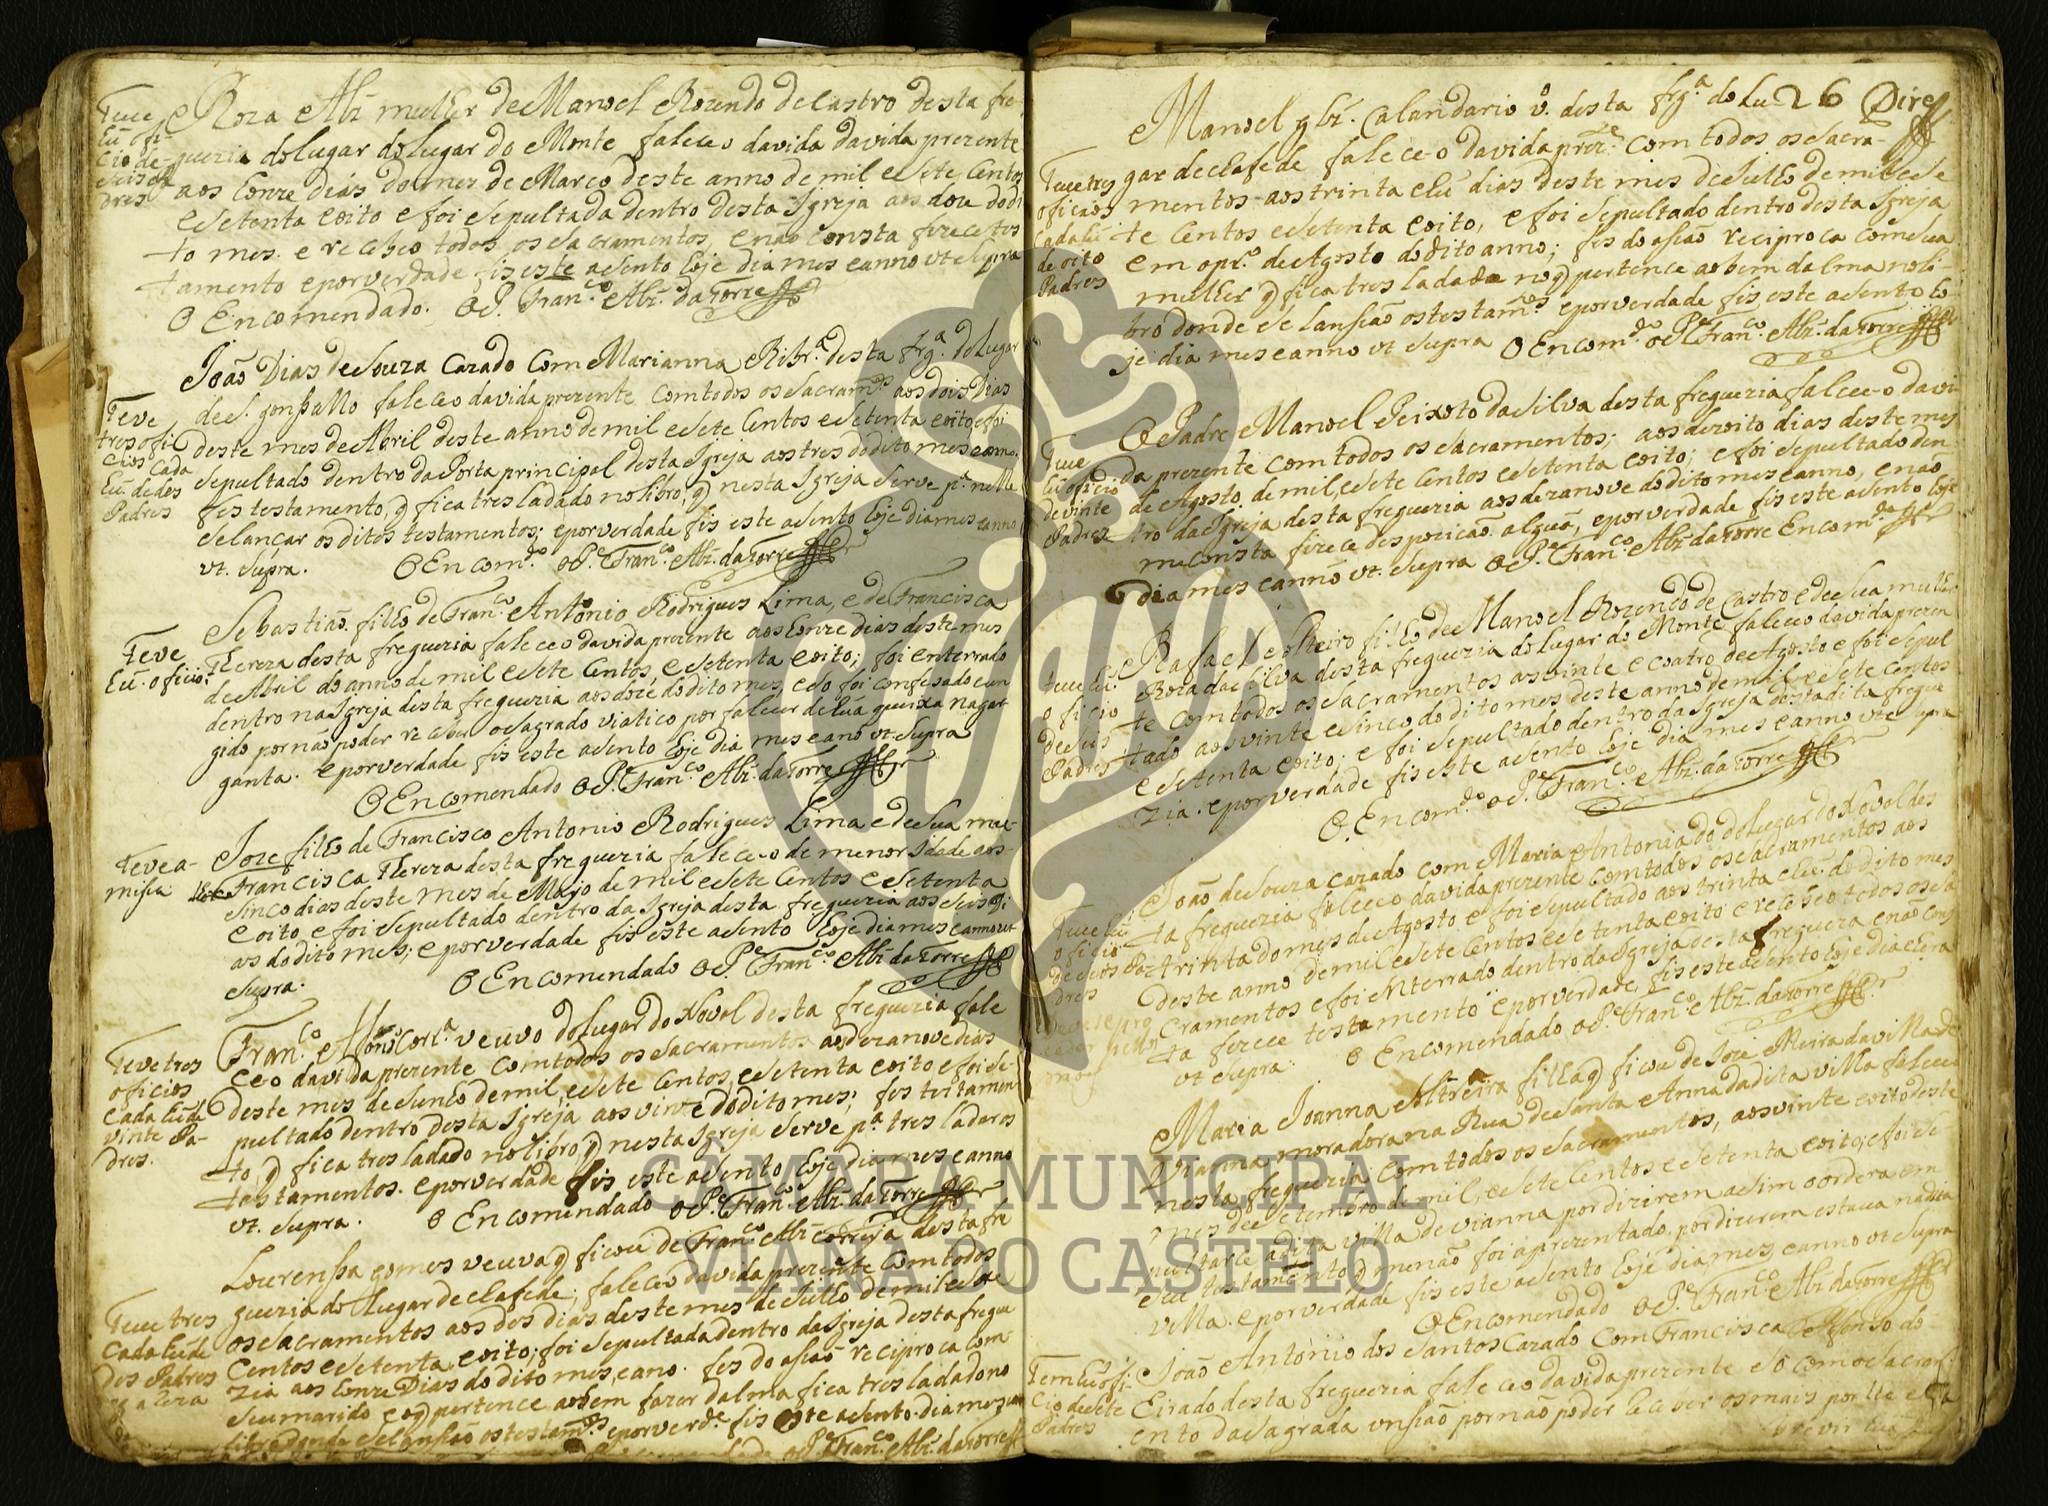 Teve
hũ ofi-
cio de
seis Pa
dres
Roza Alz̃ mulher de Manoel Rozendo de Castro desta fre-
guezia do lugar do lugar do Monte faleceo da vida da vida prezente
aos honze dias do mes de Março deste anno de mil e sete centos
e setenta e oito e foi sepultada dentro desta Igreja aos doze do di
to mes. e recebeo todos os sacramentos, e não consta fizece tes
tamento e por verdade fis este asento hoje dia mes e anno ut supra
O Encomendado. O P.e Fran.co Alz̃ da Torre
Teve
tres ofi
cios cada
hũ de des
Padres
João Dias de Souza cazado com Marianna Ribr.a desta frg.a do lugar
de S. gonsallo faleceo da vida prezente com todos os sacram.tos aos dois dias
deste mes de Abril deste anno de mil e sete centos e setenta e oito e foi
sepultado dentro da Porta principal desta Igreja aos tres do dito mes e anno.
fes testamento, q̃ fica tresladado no libro, q̃ nesta Igreja serve p.a nelle
se lançar os ditos testamentos; e por verdade fis este asento hoje dia mes e anno
ut. supra. O Encom.do o P.e Fran.co Alz̃. da Torre
Teve
hũ. oficio.
Sebastião. filho de Fran.co Antonio Rodrigues Lima, e de Francisca
Thereza desta freguezia faleceo da vida prezente aos honze dias deste mes
de Abril do anno de mil e sete centos, e setenta e oito; foi enterrado
dentro na Igreja desta freguezia aos doze do dito mes, e so foi confesado e un
gido por não poder receber o sagrado viatico por falecer de hũa queixa na gar
ganta. e por verdade fis este asento hoje dia mes e ano ut supra
O Encomendado o P.e Fran.co Alz̃. da Torre
Teve a-
misa
Joze filho de Francisco Antonio Rodrigues Lima e de sua mu-
Francisca Thereza desta freguezia faleceo de menor idade aos
sinco dias deste mes de Mayo de mil e sete centos e setenta
e oito e foi sepultado dentro da Igreja desta freguezia aos seis di
as do dito mes; e por verdade fis este asento hoje dia mes e anno ut
supra. O Encomendado o P.e Fran.co Alz̃ da Torre
Teve tres
oficios
cada hũ de
vinte Pa-
dres.
Fran.co Afonço Corr.a veuvo do lugar do Noval desta freguezia fale
ceo da vida prezente com todos os sacramentos aos dezanove dias
deste mes de Junho de mil e sete centos, e setenta e oito e foi se-
pultado dentro desta Igreja aos vinte do dito mes; fes testamen
to, q̃ fica tresladado no libro, q̃ nesta Igreja serve p.a tresladar os
testamentos. e por verdade fis este asento hoje dia mes e anno
ut. supra. O Encomendado o P.e Fran.co Alz̃. da Torre
Teve tres
cada hũ de
des Padres
Lourensa gomes veuva q̃ ficou de Fran.co Alz̃ Correya desta fre
guezia do lugar de clafede; faleceo da vida prezente com todos
os sacramentos aos des dias deste mes de Julho de mil e sete
centos e setenta e oito; foi sepultada dentro da Igreja desta fregue
zia aos honze Dias do dito mes, e ano. fes doasão reciproca com
seu marido e o q̃ pertence ao bem fazer dalma fica tresladado no
libro donde se lansão os testam.tos e por verd.e fis este asento dia mes
o P.e Fran.co Alz̃. da Torre
26 Pires
Teve tres
oficios
cada hũ
de oito
Padres
Manoel glz̃. Calandario v.o desta frg.a do lu
gar de clafede faleceo da vida prez.te com todos os sacra-
mentos aos trinta e hũ dias deste mes de Julho de mil e se
te centos e setenta e oito, e foi sepultado dentro desta Igreja
em o pr.o de Agosto do dito anno; fes doasão reciproca com sua
mulher q̃ fica tresladada no q̃ pertence ao bem dalma no li-
bro donde se lansão os testam.tos e por verdade fis este asento ho
je dia mes e anno ut supra O Encom.do o P.e Fran.co Alz̃. da Torre
Teve
hũ oficio
de vinte
Padres
O Padre Manoel Peixoto da Silva desta freguezia faleceo da vi-
da prezente com todos os sacramentos; aos dezoito dias deste mes
de Agosto, de mil, e sete centos e setenta e oito; e foi sepultado den-
tro da Igreja desta freguezia aos dezanove do dito mes e anno, e não
me consta fizece despozicão algũa, e por verdade fis este asento hoje
dia mes e anno ut. supra o P.e Fran.co Alz̃ da Torre Encom.do
Teve hũ
oficio
de seis
Padres
Rafael solteiro filho de Manoel Rozendo de Castro e de sua mulher
Roza da Silva desta freguezia do lugar do Monte faleceo da vida prezen
te com todos os sacramentos aos vinte e coatro de Agosto e foi sepul
tado aos vinte e sinco do dito mes deste anno de mil e sete centos
e setenta e oito; e foi sepultado dentro da Igreja desta dita fregue
zia. e por verdade fis este asento hoje dia mes e anno ut supra
O Encom.do o P.e Fran.co Alz̃. da Torre
Teve hũ
oficio
de seis Pa
dres
João de Souza cazado com Maria Antonia do do lugar do Noval des
ta freguezia faleceo da vida prezente com todos os sacramentos aos
trinta do mes de Agosto e foi sepultado aos trinta e hũ do dito mes
deste anno de mil e sete centos e setenta e oito e recebeo todos os sa
cramentos e foi enterrado dentro da Igreja desta freguezia e não cons
ta fizece testamento e por verdade, fis este asento hoje dia e hera
ut supra. O Encomendado o P.e Fran.co Alz̃. da Torre
Maria Joanna filha q̃ ficou de Joze Meira da villa de
Vianna moradora na Rua de Santa Anna da dita villa faleceo
nesta freguezia com todos os sacramentos, aos vinte e oito deste
mes de setembro de mil, e sete centos e setenta e oito; e foi se-
pultarce a dita villa de vianna por dizirem asim o ordena em
seu testamento q̃ me não foi aprezentado, por dizerem estava na dita
villa. e por verdade fis este asento hoje dia mes, e anno ut supra
O Encomendado o P.e Fran.co Alz̃ da Torre
Tem hũ ofi-
cio de sete
Padres
Joao Antonio dos Santos Cazado com Francisca Affonso do
Eirado desta freguezia faleceo da vida prezente so com o sacram.
ento da sagrada unsão por não poder receber os mais por lhe
CÂMARA MUNICIPAL
VIANA DO CASTELO